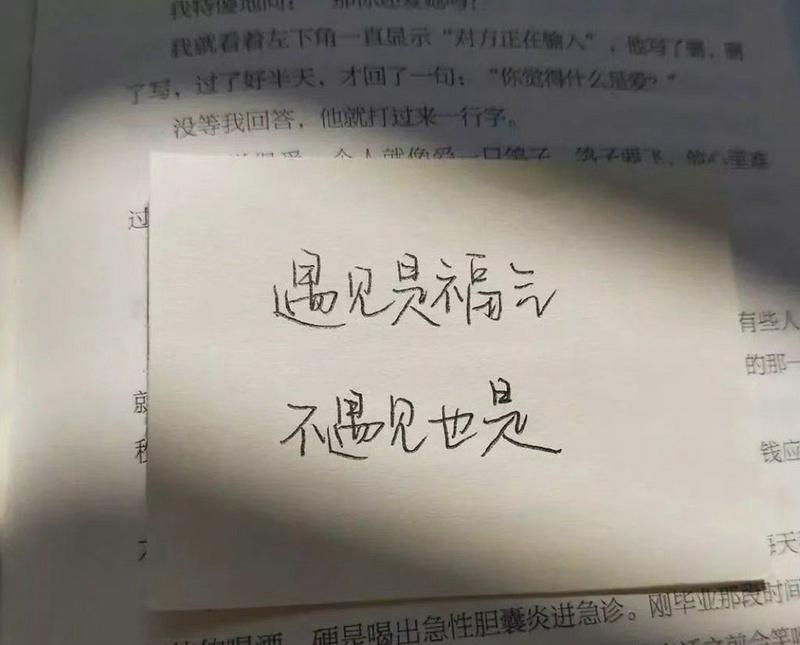 我特傻地问：“那你还爱她吗？”
我就看着左下角一直显示“对方正在输入”，他写了删，删
了写，过了好半天，才回了一句：“你觉得什么是爱？”
没等我回答，他就打过来一行字。
个人就像爱一只鸽子，鸽子要飞，他心里难
过
遇见是福气
有些人
的那一
就
不遇见也是
钱应
的喝酒，硬是喝出急性胆囊炎进急诊。刚毕业那段时间